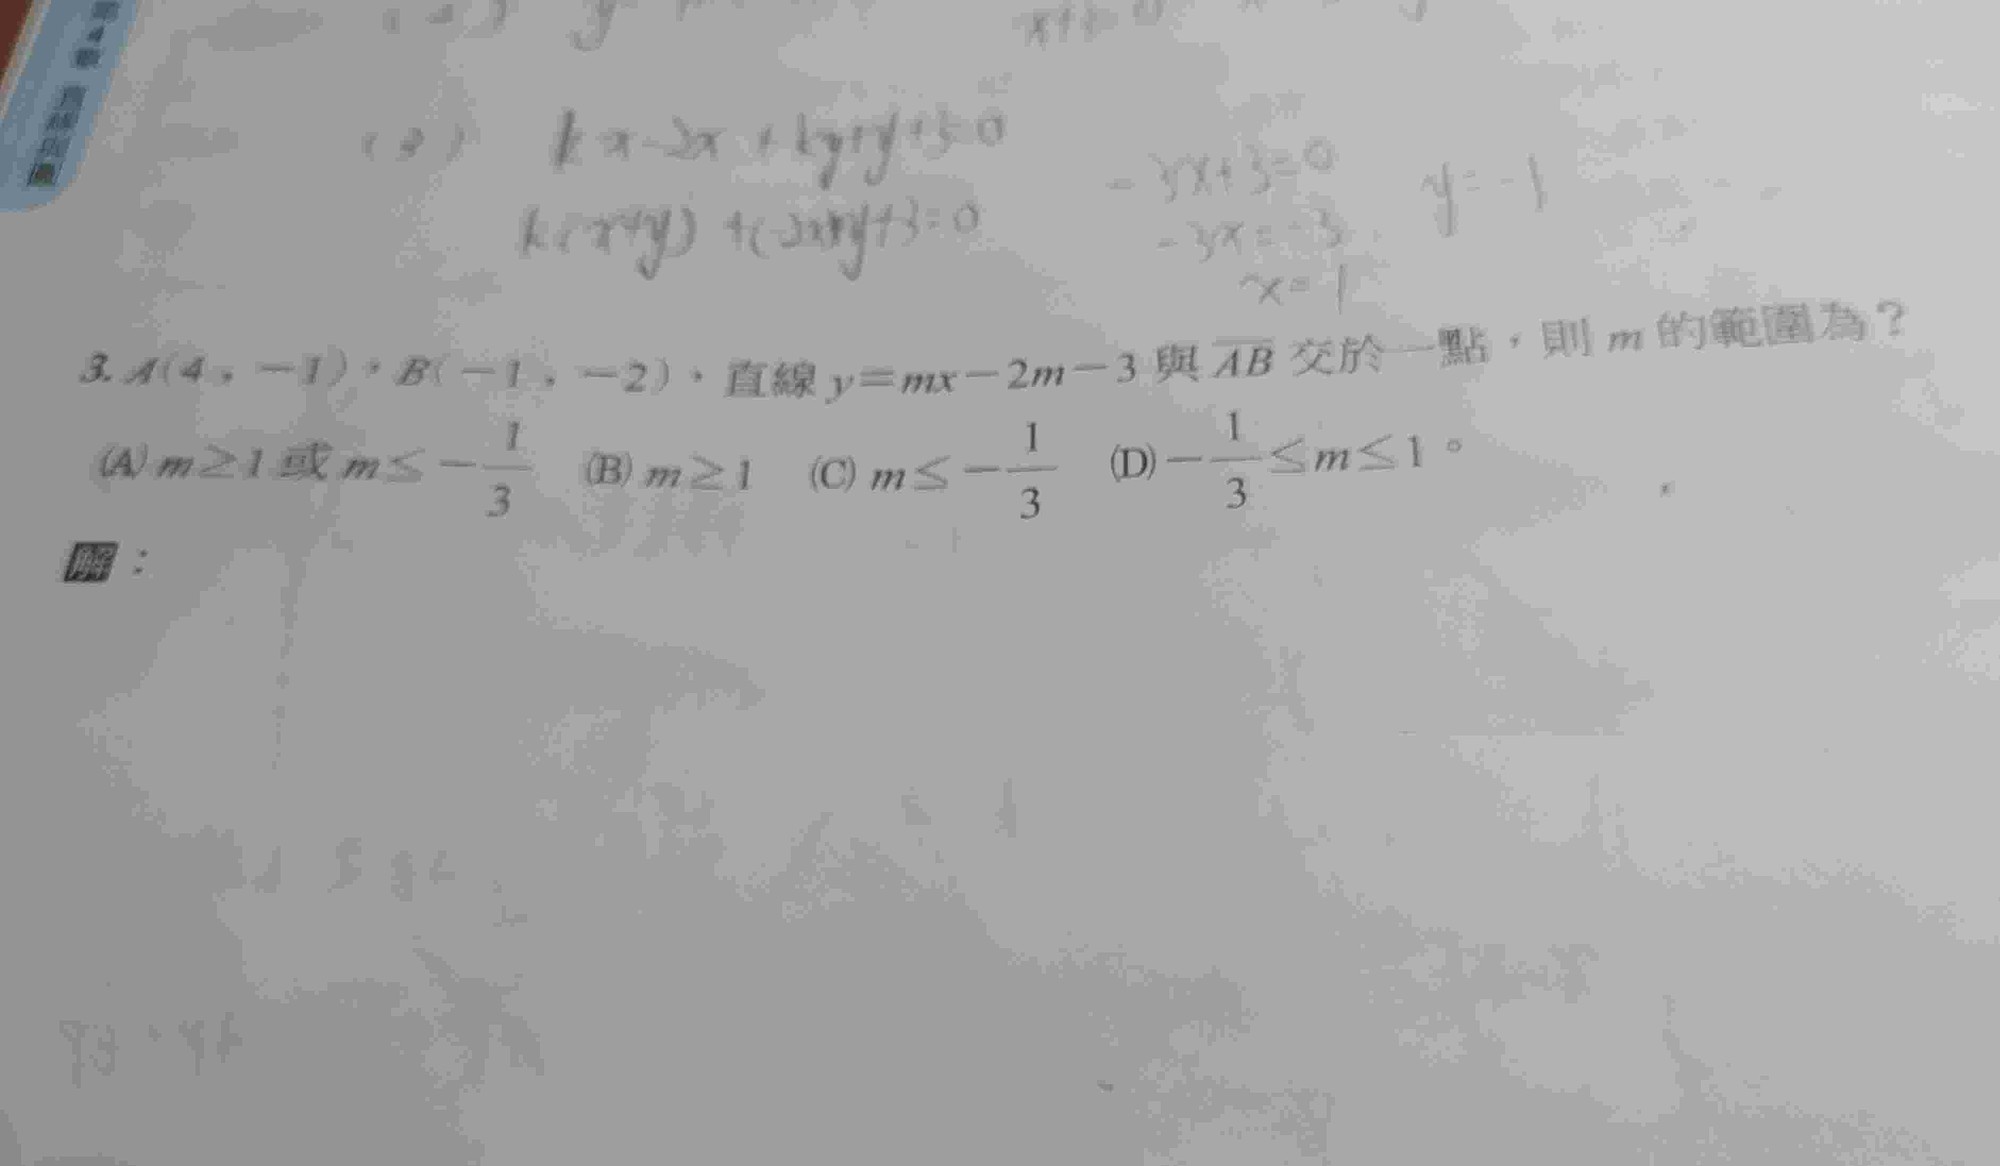 第4章
x+
(2) kx-2x+ky+y+3=0
k(x+y)+(-2x+y+3=0
-3x+3=0
-3x=-3
x=1
y=-1
3. A(4,-1),B(-1,-2),直線 y=mx-2m-3 與 AB 交於一點,則 m 的範圍為?
(A) m≥1 或 m≤-1/3 (B) m≥1 (C) m≤-1/3 (D) -1/3≤m≤1。
解: